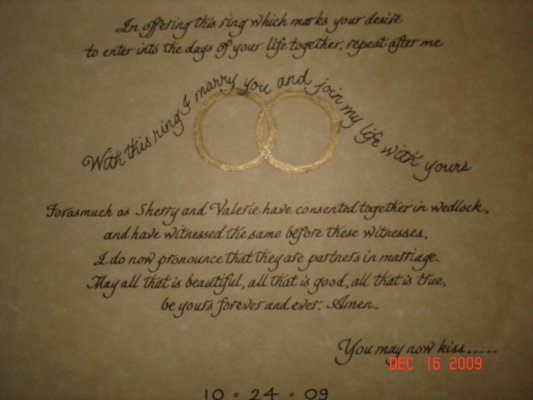 In offering this ring which marks your desire
to enter into the days of your life together, repeat after me
With this ring I marry you and join my life with yours
Forasmuch as Sherry and Valerie have consented together in wedlock,
and have witnessed the same before these witnesses,
I do now pronounce that they are partners in marriage.
May all that is beautiful, all that is good, all that is true,
be yours forever and ever. Amen.
You may now kiss.....
DEC 16 2009
10 • 24 • 09